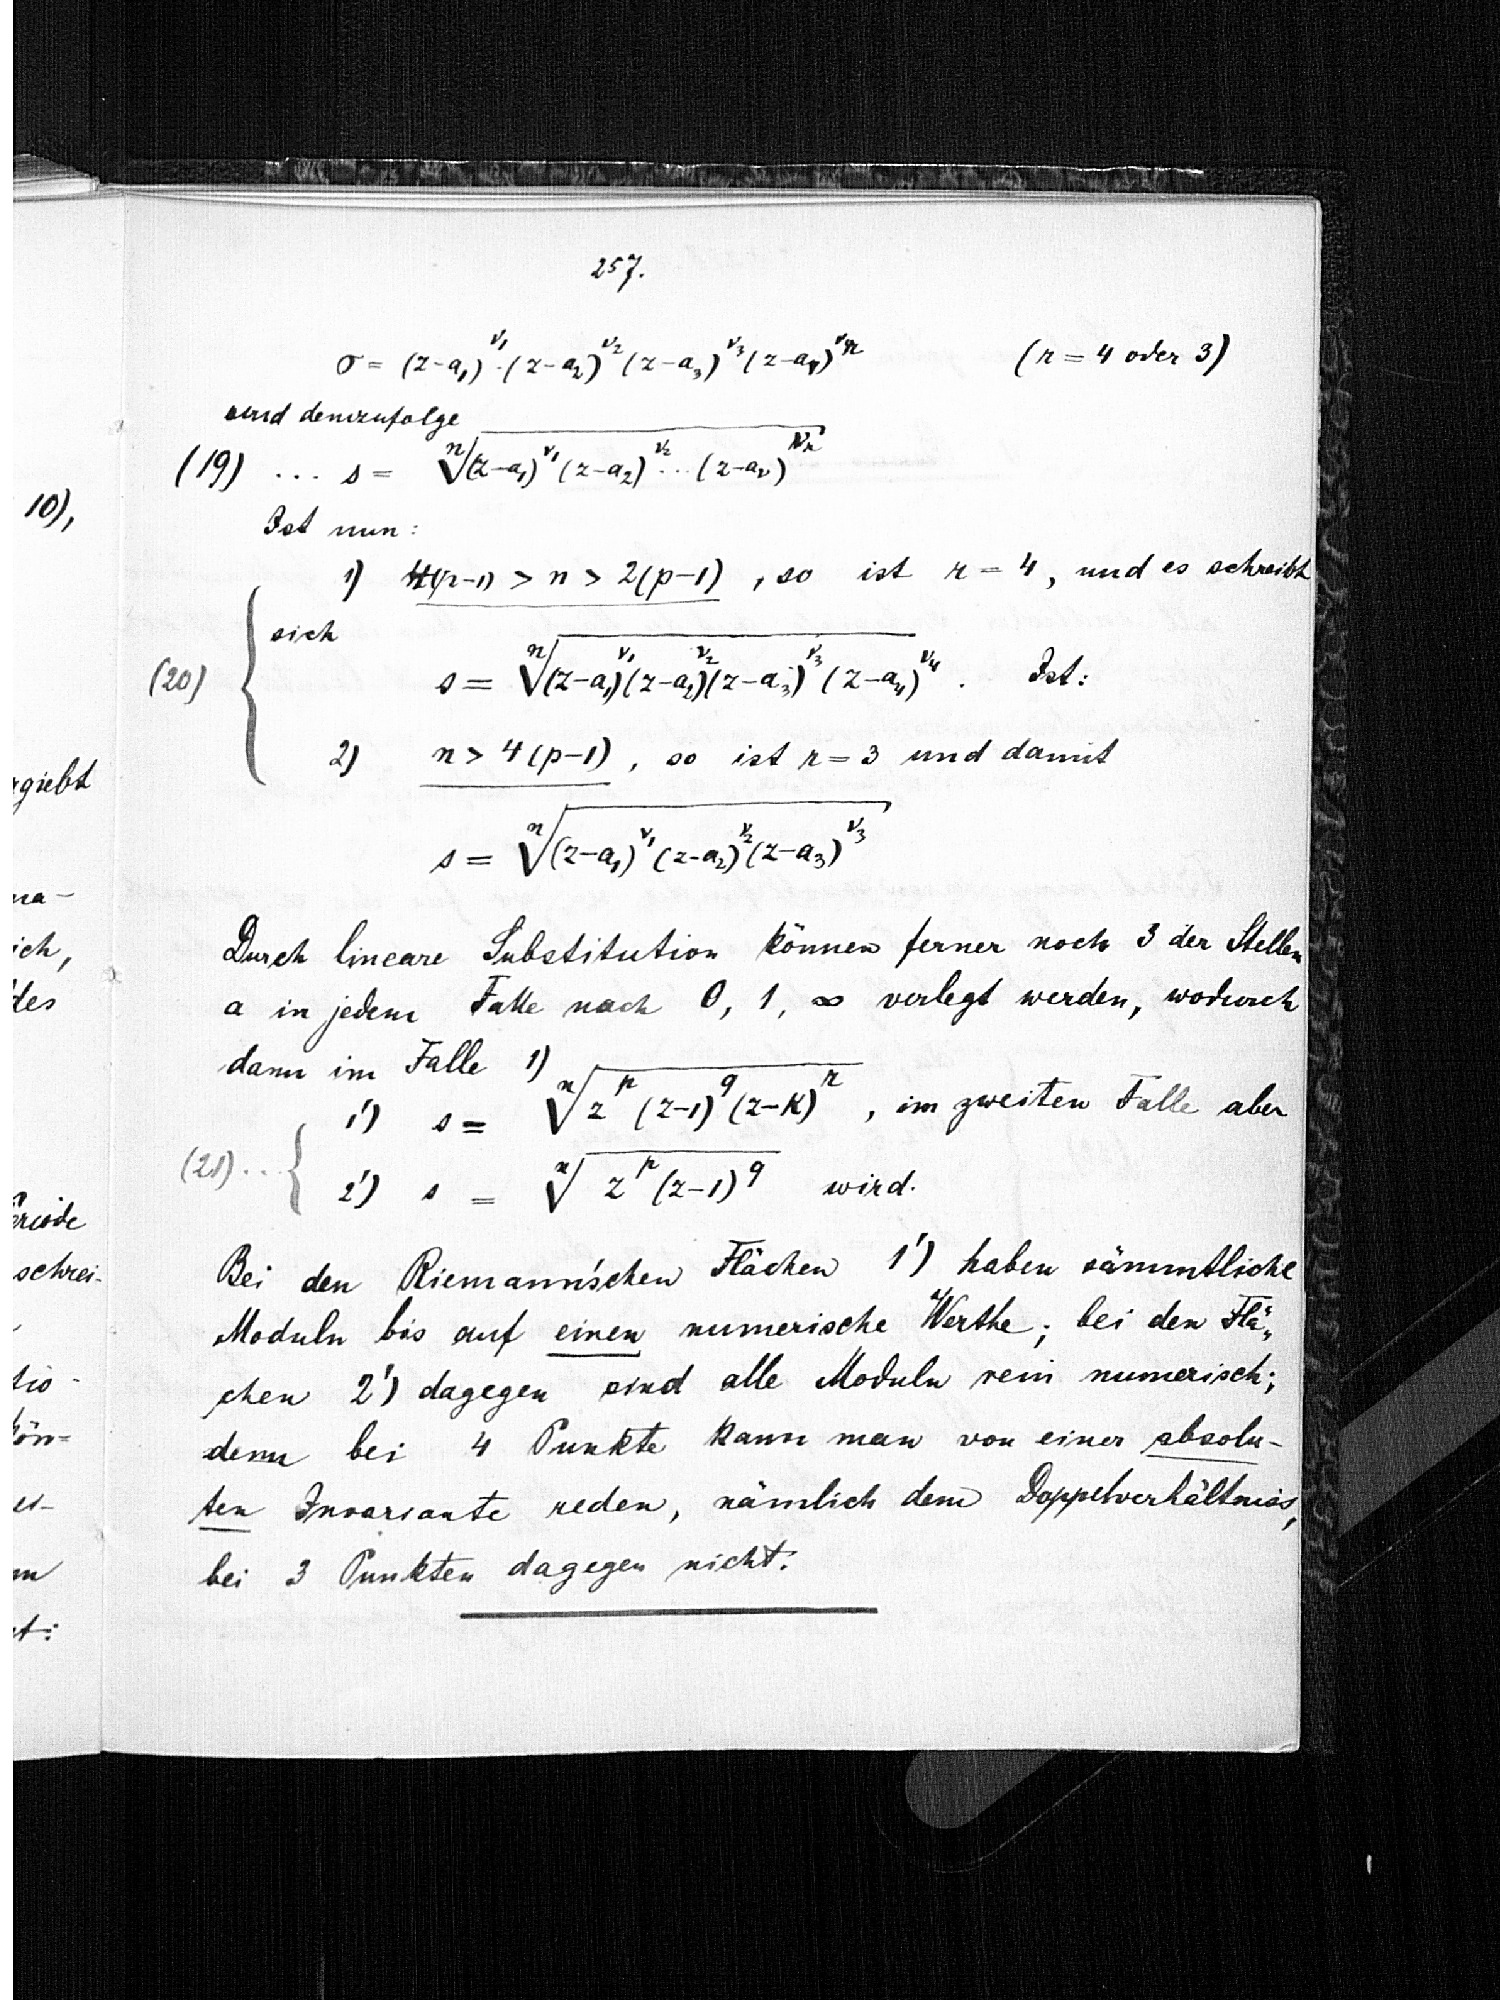 257.
σ = (z-a₁)^ν₁ · (z-a₂)^ν₂ (z-a₃)^ν₃ (z-a₄)^ν₄ (r = 4 oder 3)
und demzufolge
(19) ... s = ⁿ√(z-a₁)^ν₁ (z-a₂)^ν₂ ... (z-aᵣ)^νᵣ
Ist nun:
1) 4(p-1) > n > 2(p-1), so ist r = 4, und es schreibt
sich
(20) s = ⁿ√(z-a₁)^ν₁ (z-a₂)^ν₂ (z-a₃)^ν₃ (z-a₄)^ν₄ . Ist:
2) n > 4(p-1), so ist r = 3 und damit
s = ⁿ√(z-a₁)^ν₁ (z-a₂)^ν₂ (z-a₃)^ν₃
Durch lineare Substitution können ferner noch 3 der Stellen
a in jedem Falle nach 0, 1, ∞ verlegt werden, wodurch
dann im Falle 1)
1') s = ⁿ√z^p (z-1)^q (z-k)^r , im zweiten Falle aber
(21)...
2') s = ⁿ√z^p (z-1)^q wird.
Bei den Riemann'schen Flächen 1') haben sämmtliche
Moduln bis auf einen numerische Werthe; bei den Flä-
chen 2') dagegen sind alle Moduln rein numerisch;
denn bei 4 Punkte kann man von einer absolu-
ten Invariante reden, nämlich dem Doppelverhältniss,
bei 3 Punkten dagegen nicht.
10),
rgiebt
na-
ich,
des
Periode
schrei-
tio-
kön-
et: